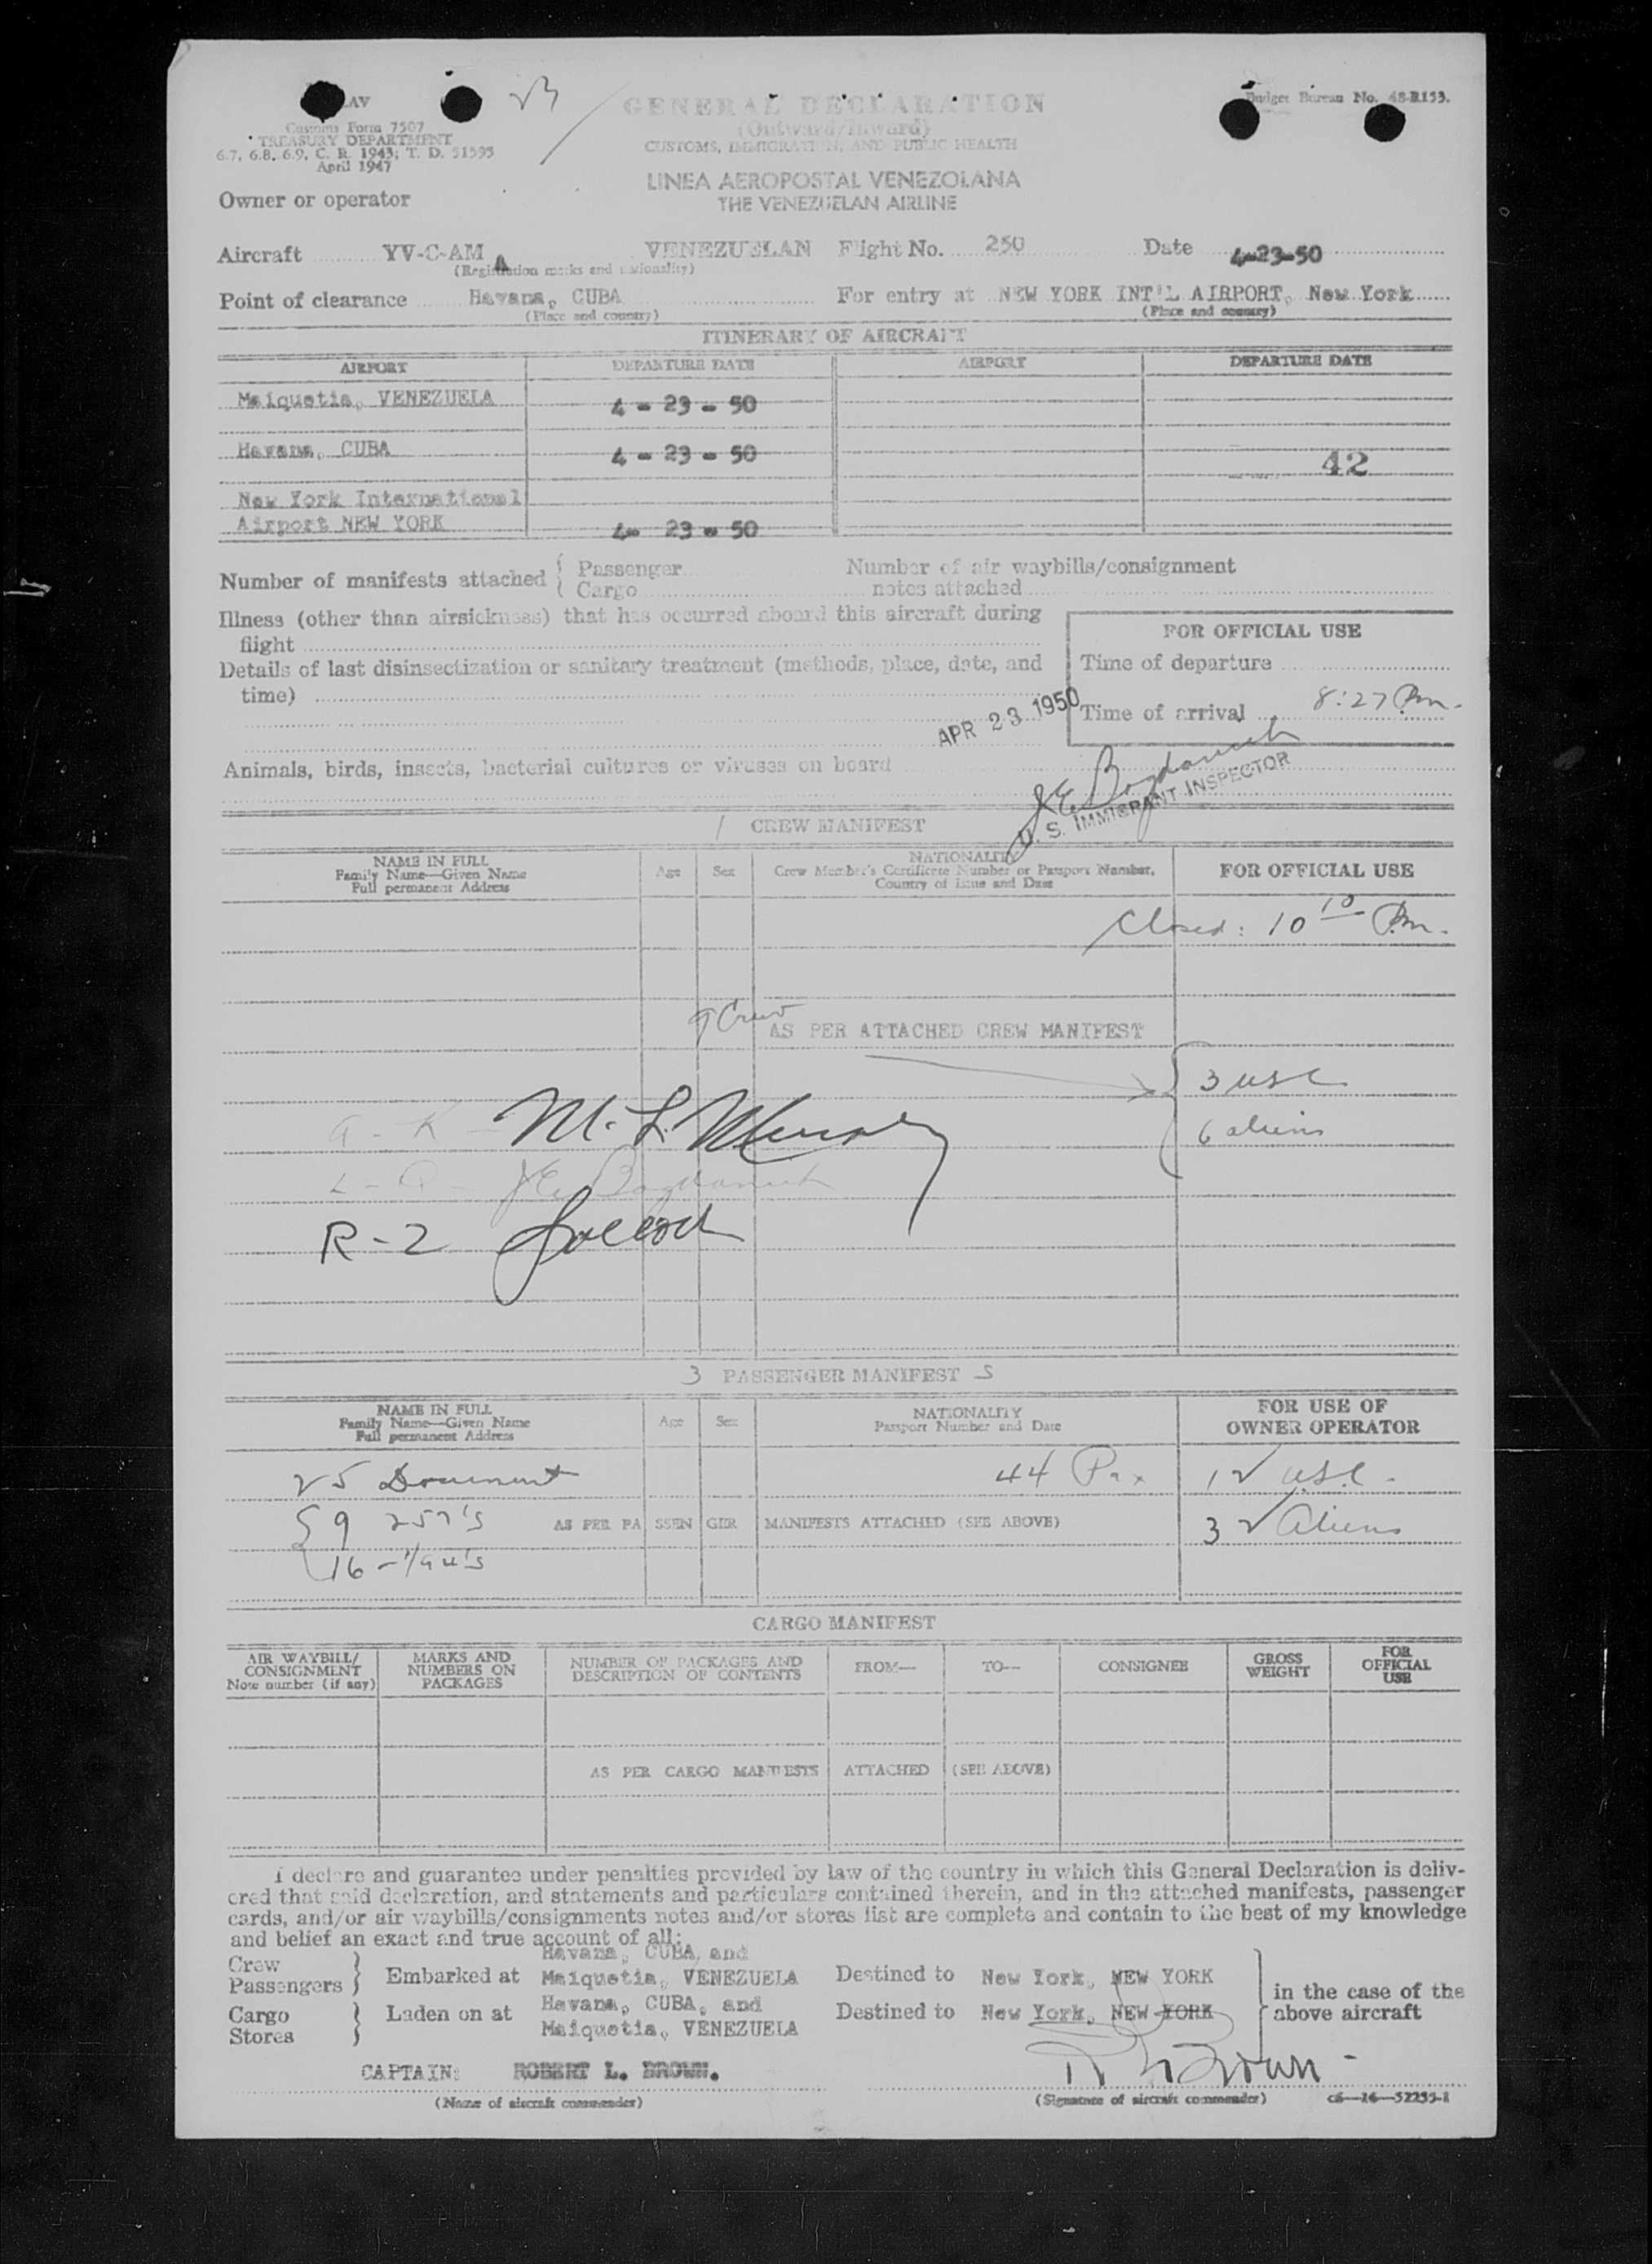 LAV
23
GENERAL DECLARATION
Budget Bureau No. 48-R153.
Customs Form 7507
TREASURY DEPARTMENT
6.7, 6.8, 6.9, C. R. 1943; T. D. 51595
April 1947
(Outward/Inward)
CUSTOMS, IMMIGRATION, AND PUBLIC HEALTH
LINEA AEROPOSTAL VENEZOLANA
Owner or operator THE VENEZUELAN AIRLINE
Aircraft YV-C-AMA VENEZUELAN Flight No. 250 Date 4-23-50
(Registration marks and nationality)
Point of clearance Havana, CUBA For entry at NEW YORK INT'L AIRPORT, New York
(Place and country) (Place and country)
ITINERARY OF AIRCRAFT
AIRPORT DEPARTURE DATE AIRPORT DEPARTURE DATE
Maiquetia, VENEZUELA 4 - 23 - 50
Havana, CUBA 4 - 23 - 50 42
New York International
Airport NEW YORK 4- 23 - 50
Number of manifests attached { Passenger Number of air waybills/consignment
Cargo notes attached
Illness (other than airsickness) that has occurred aboard this aircraft during
flight
FOR OFFICIAL USE
Details of last disinsectization or sanitary treatment (methods, place, date, and
time)
Time of departure
APR 23 1950
Time of arrival 8:27 Pm.
Animals, birds, insects, bacterial cultures or viruses on board
J E Bogdanich
U. S. IMMIGRANT INSPECTOR
1 CREW MANIFEST
NAME IN FULL
Family Name—Given Name
Full permanent Address
Age Sex
NATIONALITY
Crew Member's Certificate Number or Passport Number,
Country of Issue and Date
FOR OFFICIAL USE
Closed: 10 10 Pm.
9 Crew
AS PER ATTACHED CREW MANIFEST
3 USC
6 aliens
A - K - M. L.
L - Q - J E Bogdanich
R - 2
3 PASSENGER MANIFEST S
NAME IN FULL
Family Name—Given Name
Full permanent Address
Age Sex
NATIONALITY
Passport Number and Date
FOR USE OF
OWNER OPERATOR
25 Document 44 Pax 12 USC.
9 257's AS PER PASSENGER MANIFESTS ATTACHED (SEE ABOVE) 32 Aliens
16 - I/94's
CARGO MANIFEST
AIR WAYBILL/
CONSIGNMENT
Note number (if any)
MARKS AND
NUMBERS ON
PACKAGES
NUMBER OF PACKAGES AND
DESCRIPTION OF CONTENTS
FROM—
TO—
CONSIGNEE
GROSS
WEIGHT
FOR
OFFICIAL
USE
AS PER CARGO MANIFESTS ATTACHED (SEE ABOVE)
I declare and guarantee under penalties provided by law of the country in which this General Declaration is deliv-
ered that said declaration, and statements and particulars contained therein, and in the attached manifests, passenger
cards, and/or air waybills/consignments notes and/or stores list are complete and contain to the best of my knowledge
and belief an exact and true account of all:
Crew
Passengers } Embarked at Havana, CUBA, and
Maiquetia, VENEZUELA Destined to New York, NEW YORK
Cargo
Stores } Laden on at Havana, CUBA, and
Maiquetia, VENEZUELA Destined to New York, NEW YORK
in the case of the
above aircraft
CAPTAIN: ROBERT L. BROWN. R L Brown
(Name of aircraft commander) (Signature of aircraft commander) c6—16—52235-1